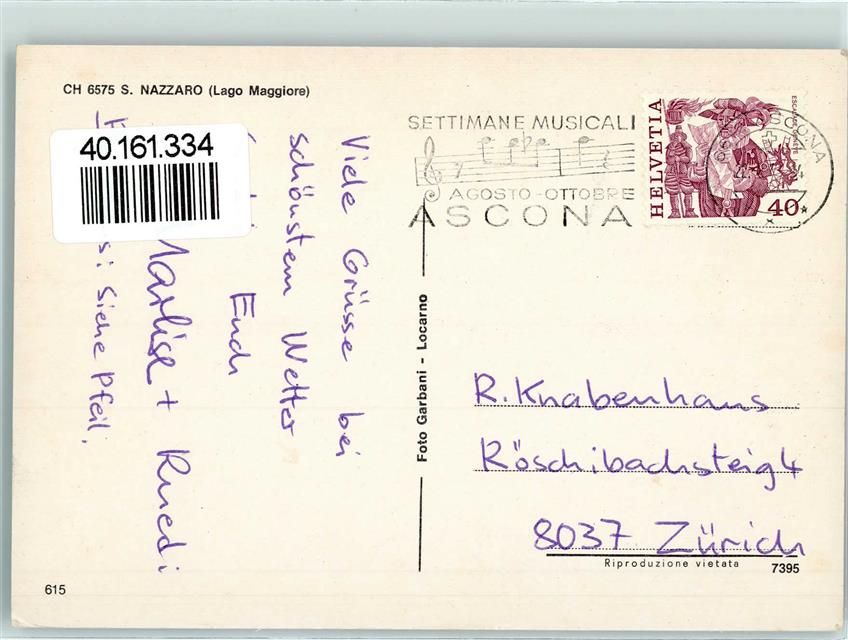 CH 6575 S. NAZZARO (Lago Maggiore)
40.161.334
Viele Grüsse bei
schönstem Wetter
Euch
Marlise + Ruedi
Siehe Pfeil.
615
Foto Garbani - Locarno
SETTIMANE MUSICALI
AGOSTO - OTTOBRE
ASCONA
HELVETIA
40
ASCONA
R. Knabenhans
Röschibachsteig 4
8037 Zürich
Riproduzione vietata
7395